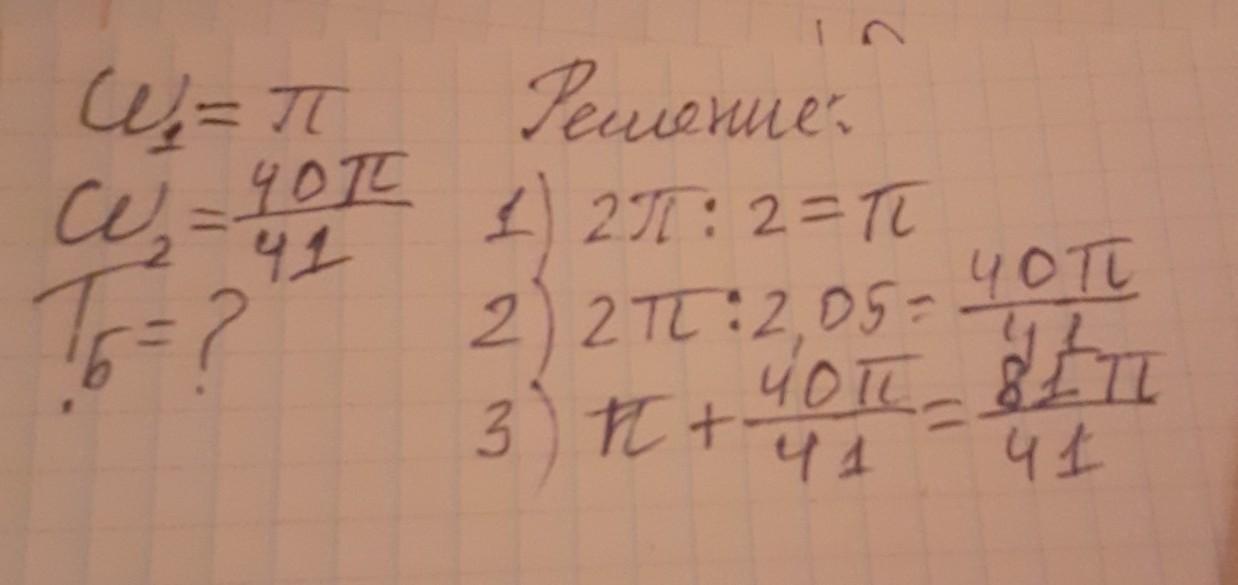 ω₁ = π
ω₂ = 40π/41
T_б = ?
Решение:
1) 2π : 2 = π
2) 2π : 2,05 = 40π/41
3) π + 40π/41 = 81π/41